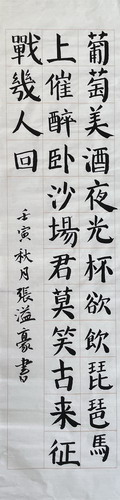 葡萄美酒夜光杯欲飲琵琶馬
上催醉卧沙場君莫笑古来征
戰幾人回
壬寅秋月張溢豪書